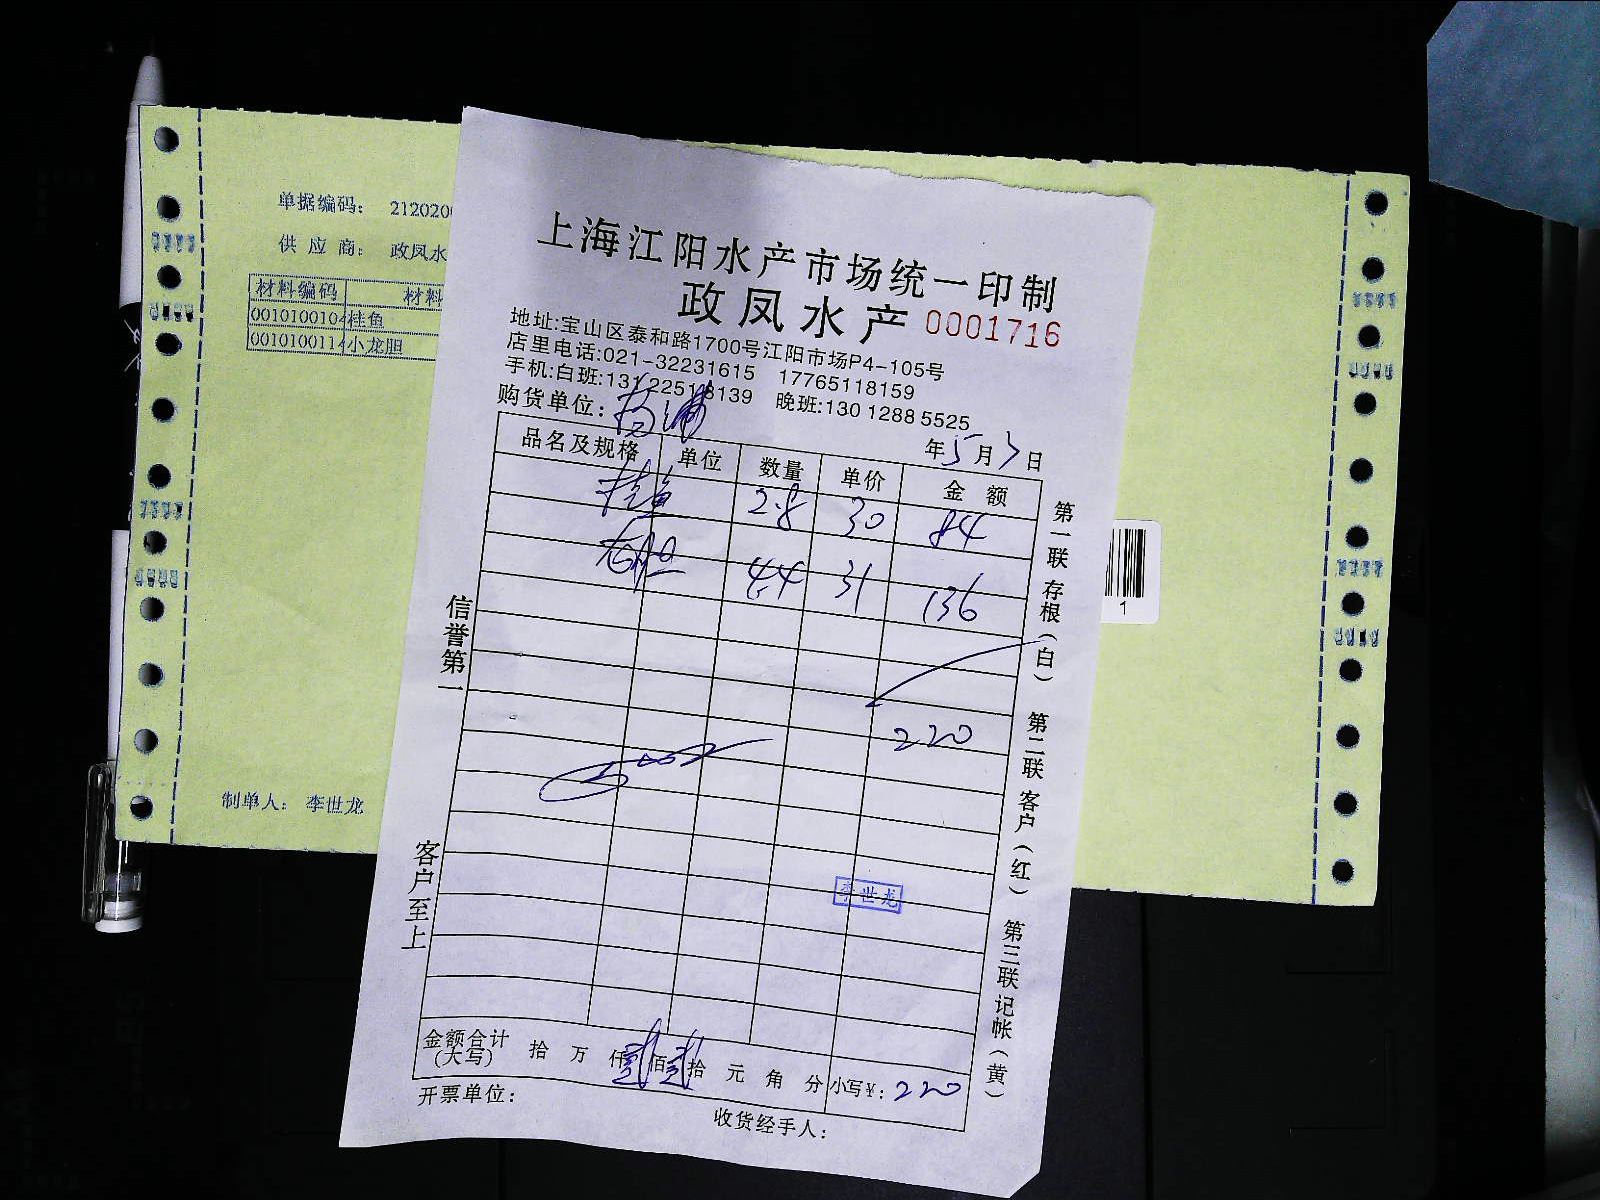 单据编码： 2120200
供 应 商： 政凤水
材料编码 材料
0010100104 桂鱼
0010100114 小龙胆
制单人： 李世龙
上海江阳水产市场统一印制
政凤水产 0001716
地址:宝山区泰和路1700号江阳市场P4-105号
店里电话:021-32231615 17765118159
手机:白班:131 2251 8139 晚班:130 1288 5525
购货单位：
年5月3日
品名及规格 单位 数量 单价 金 额
桂鱼 2.8 30 84
龙胆 4.4 31 136
220
李世龙
信誉第一
客户至上
第一联 存根（白） 第二联 客户（红） 第三联 记帐（黄）
1
金额合计(大写) 拾 万 仟 贰 佰 贰 拾 元 角 分 小写¥: 220
开票单位:
收货经手人: